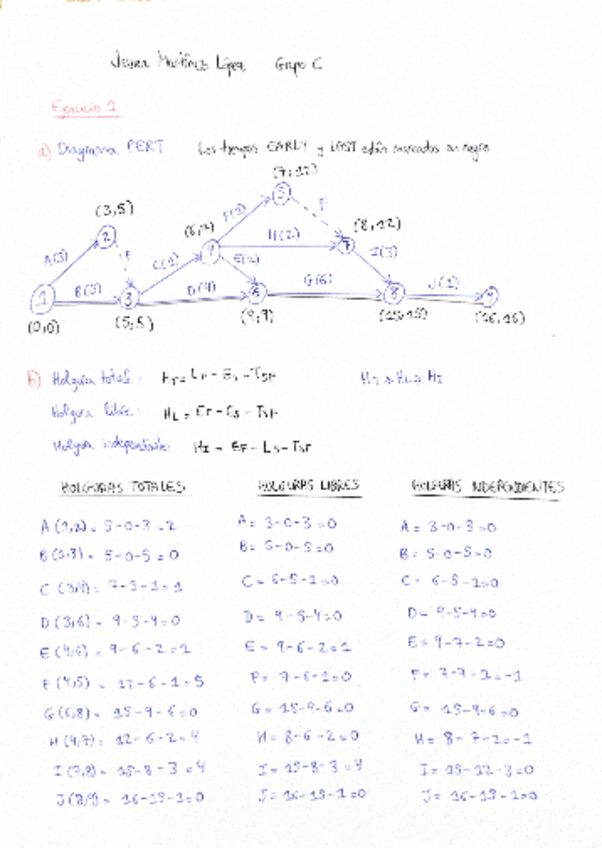 Javier Martínez López Grupo C
Ejercicio 1
a) Diagrama PERT Los tiempos EARLY y LAST están marcados en negro
(7,12)
5
(3,5) (6,7) F(1) F (8,12)
2 4 H(2) 7
A(3) F C(1) E(2) I(3)
1 B(5) 3 D(4) 6 G(6) 8 J(1) 9
(0,0) (5,5) (9,9) (15,15) (16,16)
b) Holgura total: HT = LF - ES - TSF HT ≥ HL ≥ HI
Holgura libre: HL = EF - ES - TSF
Holgura independiente: HI = EF - LS - TSF
HOLGURAS TOTALES HOLGURAS LIBRES HOLGURAS INDEPENDIENTES
A (1,2) = 5-0-3=2 A= 3-0-3=0 A= 3-0-3=0
B (1,3) = 5-0-5=0 B= 5-0-5=0 B= 5-0-5=0
C (3,4) = 7-5-1=1 C= 6-5-1=0 C= 6-5-1=0
D (3,6) = 9-5-4=0 D= 9-5-4=0 D= 9-5-4=0
E (4,6) = 9-6-2=1 E= 9-6-2=1 E= 9-7-2=0
F (4,5) = 12-6-1=5 F= 7-6-1=0 F= 7-7-1=-1
G (6,8) = 15-9-6=0 G= 15-9-6=0 G= 15-9-6=0
H (4,7) = 12-6-2=4 H= 8-6-2=0 H= 8-7-2=-1
I (7,8) = 15-8-3=4 I= 15-8-3=4 I= 15-12-3=0
J (8,9) = 16-15-1=0 J= 16-15-1=0 J= 16-15-1=0